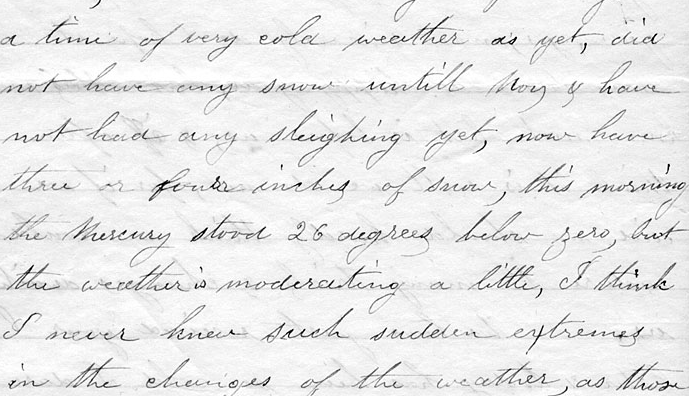 a time of very cold weather as yet, did
not have any snow untill Nov & have
not had any sleighing yet, now have
three or fourr inches of snow, this morning
the Mercury stood 26 degrees below zero, but
the weather is moderating a little, I think
I never knew such sudden extremes
in the changes of the weather, as those